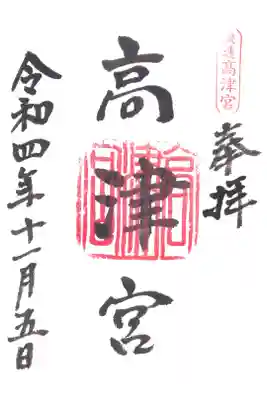 浪速高津宮
奉拝
高津宮
高津宮
令和四年十一月五日